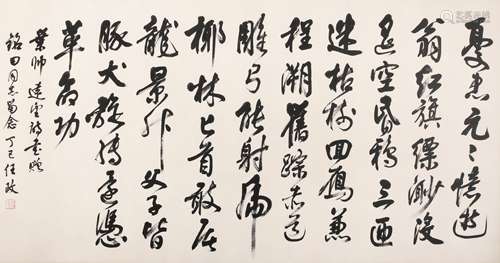 憂患元元憶逝
翁紅旗縹緲没
遥空昏鴉三匝
迷枯樹回雁兼
程溯舊踪赤道
雕弓能射虎
椰林匕首敢屠
龍景升父子皆
豚犬旋轉還憑
革命功
葉帥遠望詩書贈
銘田同志留念 丁巳任政